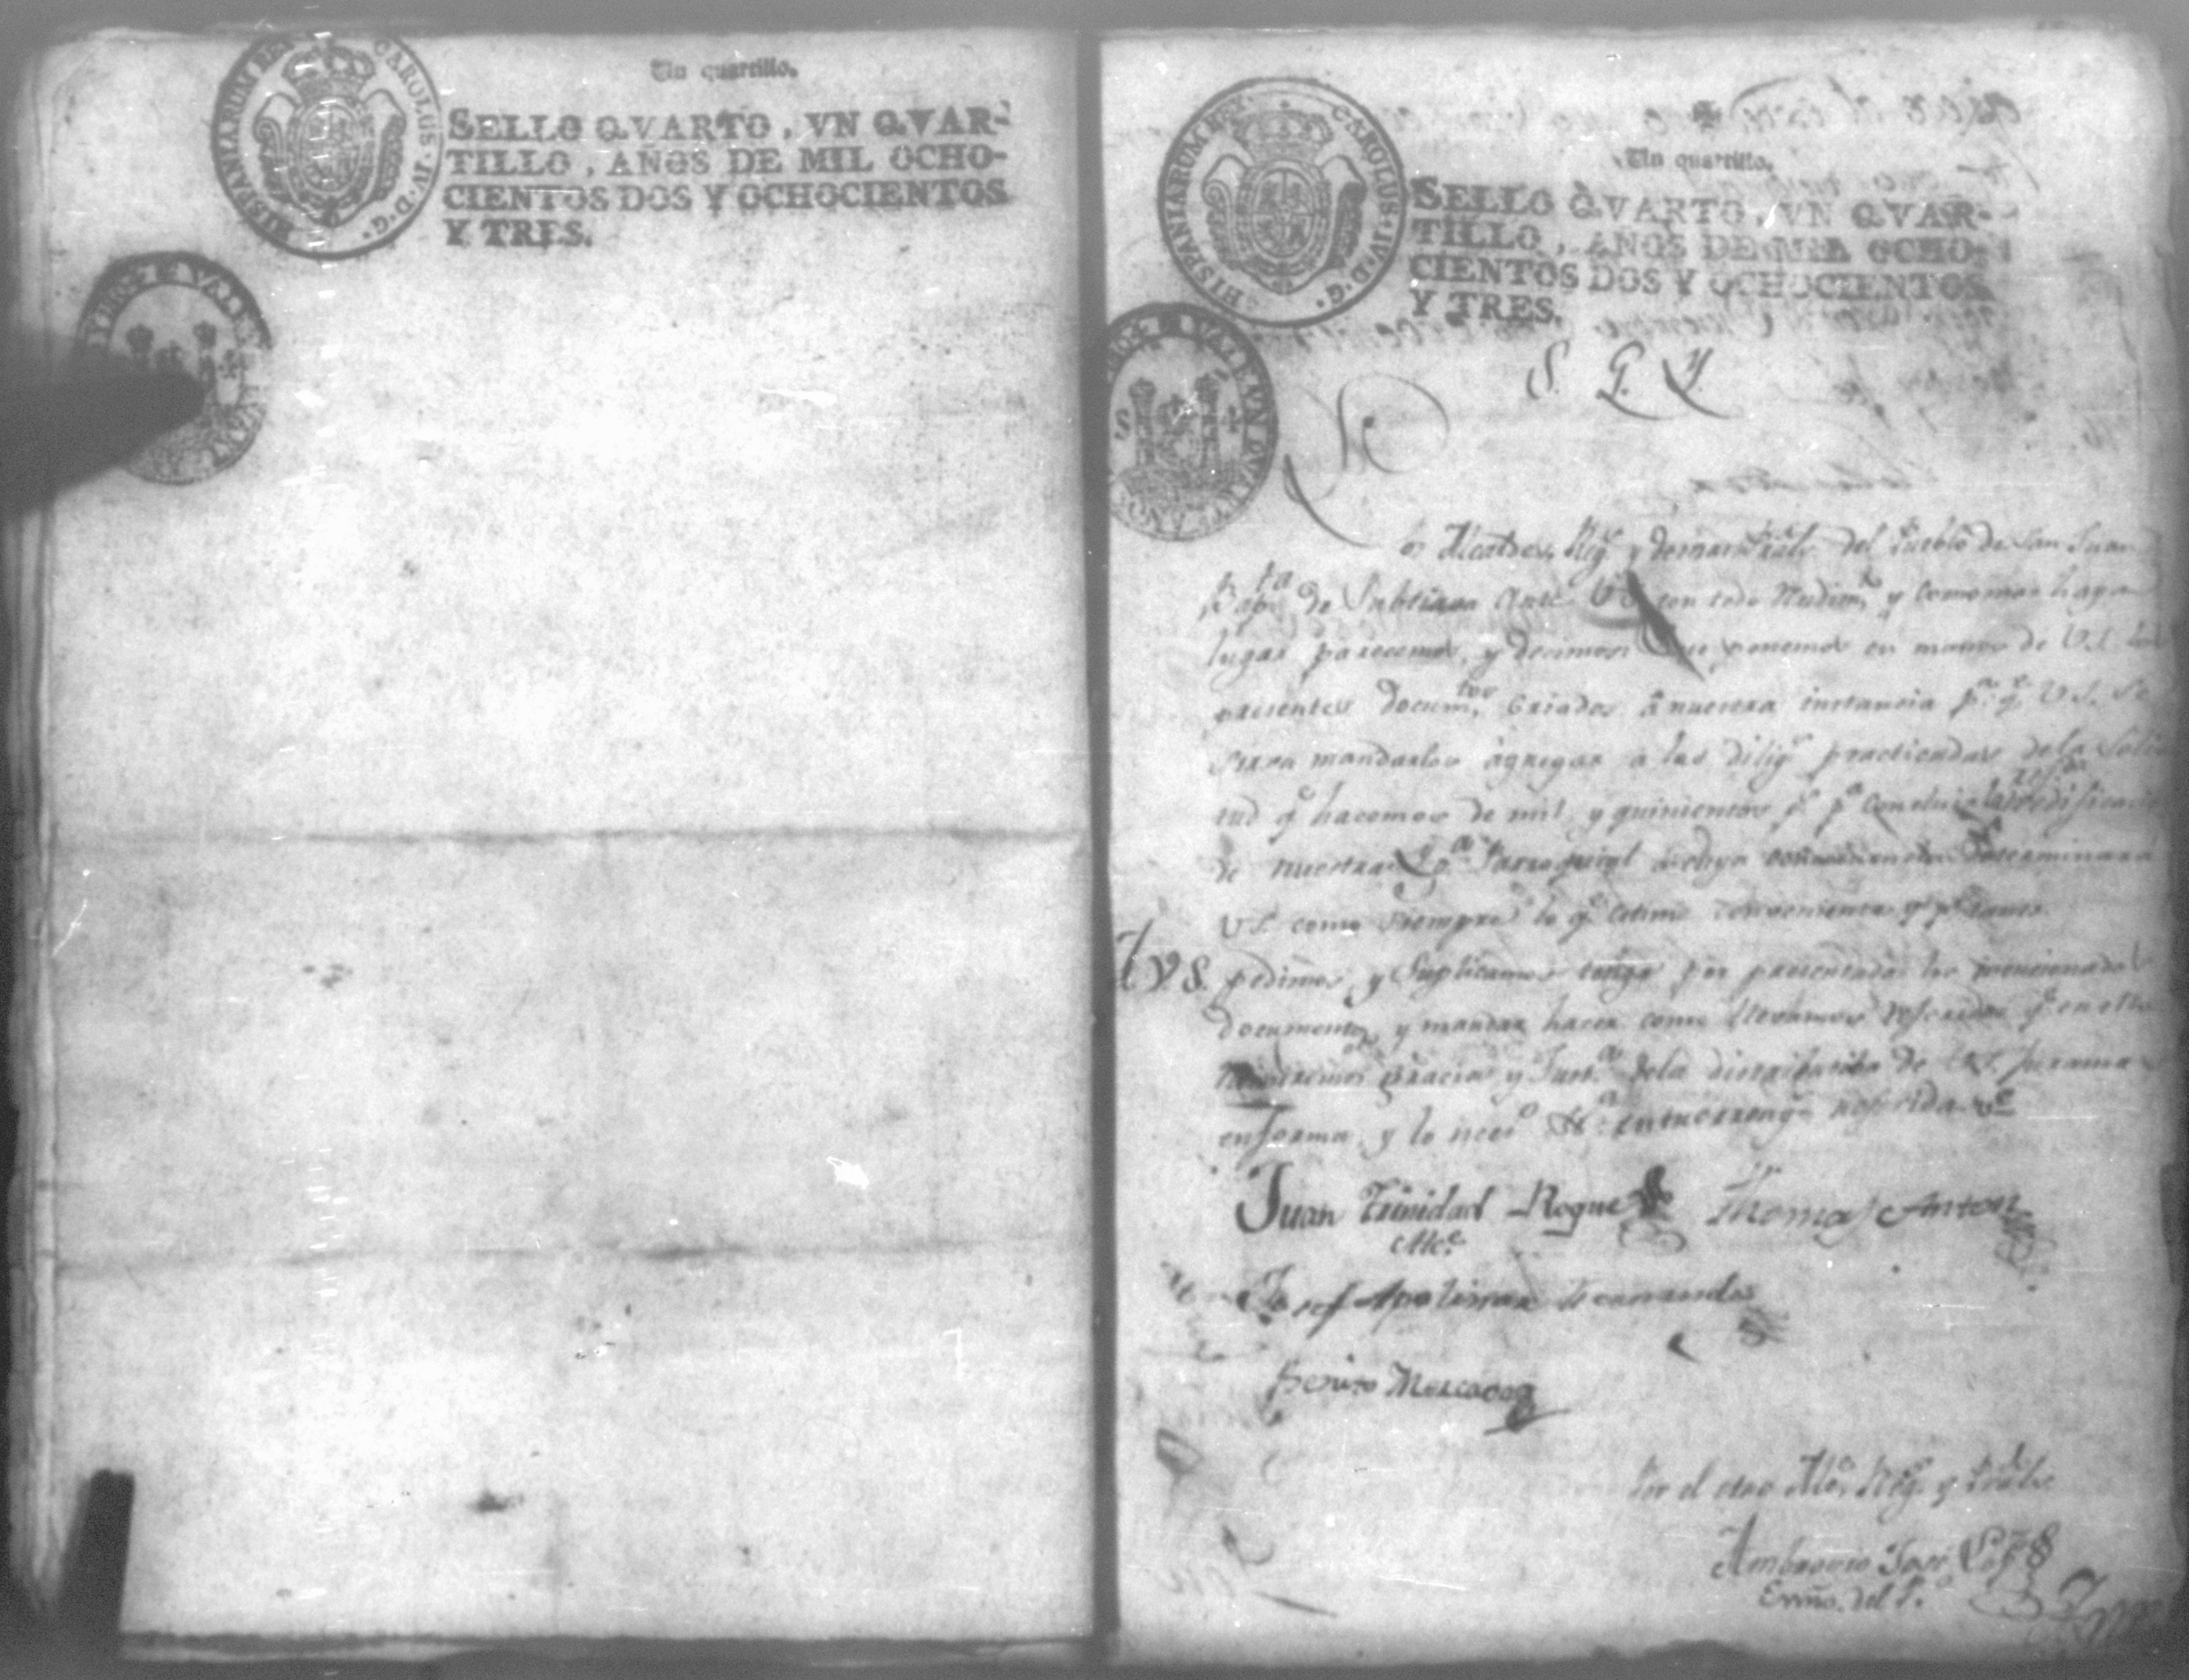 Un quartillo.
HISPANIARUM REX CAROLUS·IV·D·G·
SELLO QVARTO, VN QVAR-
TILLO, AÑOS DE MIL OCHO-
CIENTOS DOS Y OCHOCIENTOS
Y TRES.
Un quartillo.
HISPANIARUM REX · CAROLUS·IV·D·G·
SELLO QVARTO, VN QVAR-
TILLO, AÑOS DE MIL OCHO-
CIENTOS DOS Y OCHOCIENTOS
Y TRES.
S. G. Y
Los Alcaldes, Regs. y demas del Pueblo de San Juan
Bapta. de Subtiava Ante VS con todo Rendimto. y como mas haya
lugar parecemos, y decimos Que ponemos en manos de V.S. los
presentes documtos. criados a nuestra instancia pa. qe. V.S. se
sirva mandarlos agregar a las diligs. practicadas de la Solici
tud qe. hacemos de mil y quinientos ps. pa. concluir la reedificacion
de nuestra Yga. Parroquial a cuya determinara
VS. como siempre lo qe. estime conveniente, y pr. tanto
A V.S. pedimos, y Suplicamos tenga por presentados los mencionados
documentos, y mandar hacer como llevamos referido, qe. en ello
reciviremos gracia y Justa. de la de V.S. Juramos
en forma, y lo neceso. &a.
Juan Trinidad Roque Thomas Anton
Alce.
Josef Apolinar Hernandes
Benito Mercado
Por el otro Alce. Regs. y
Ambrosio José Lopz
Esnno. del Po.